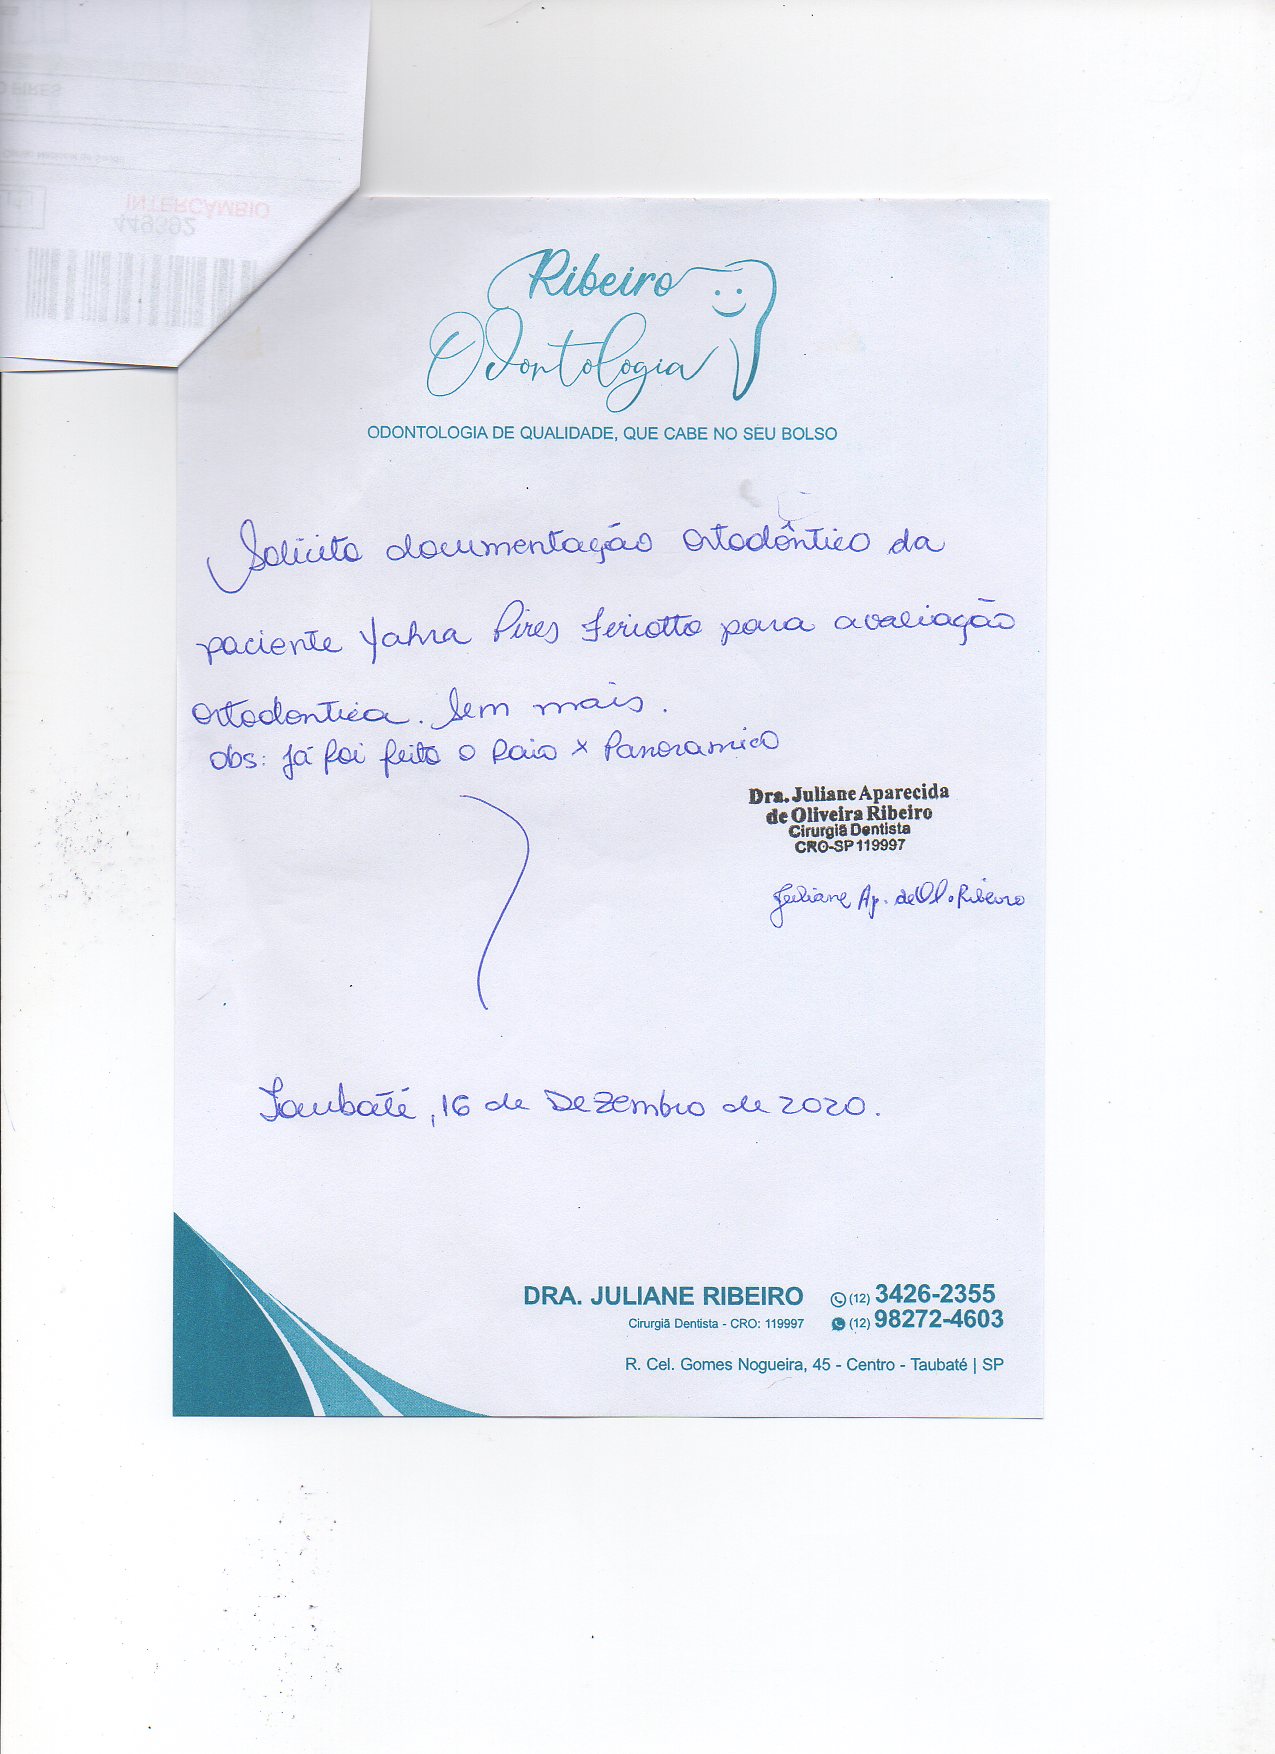 O PIRES
INTERCÂMBIO
449392
Ribeiro
Odontologia
ODONTOLOGIA DE QUALIDADE, QUE CABE NO SEU BOLSO
Solicito documentação ortodôntico da
paciente Yahra Pires Feriotto para avaliação
ortodontica. Sem mais.
obs: já foi feito o Raio x Panoramico
Dra. Juliane Aparecida
de Oliveira Ribeiro
Cirurgiã Dentista
CRO-SP 119997
Juliane Ap. de Ol. Ribeiro
Taubaté, 16 de Dezembro de 2020.
DRA. JULIANE RIBEIRO (12) 3426-2355
Cirurgiã Dentista - CRO: 119997 (12) 98272-4603
R. Cel. Gomes Nogueira, 45 - Centro - Taubaté | SP